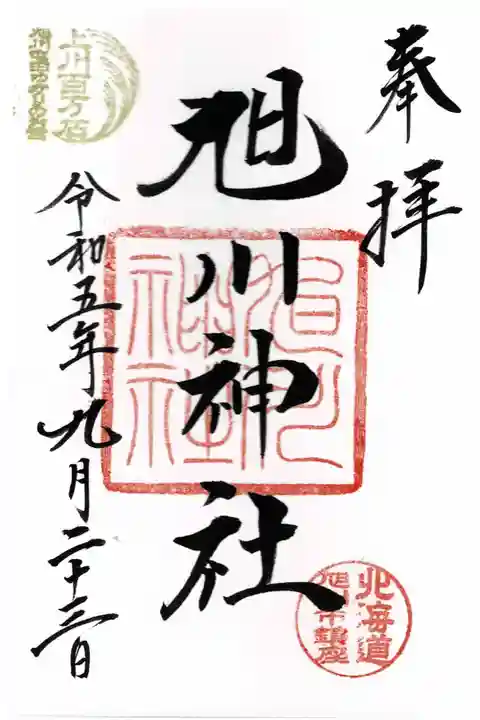 奉拝
旭川神社
旭川
神社
令和五年九月二十三日
上川百万石
北海道
旭川市鎮座